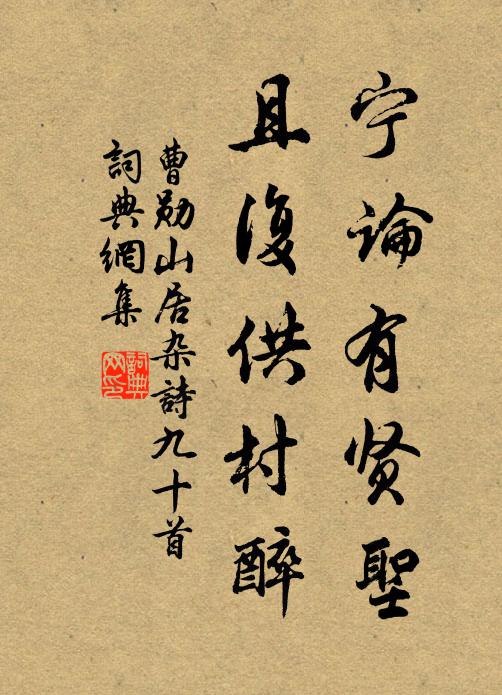 宁论有贤聖
且復供村醉
曹勋山居杂詩九十首
詞典網集
詞典网印